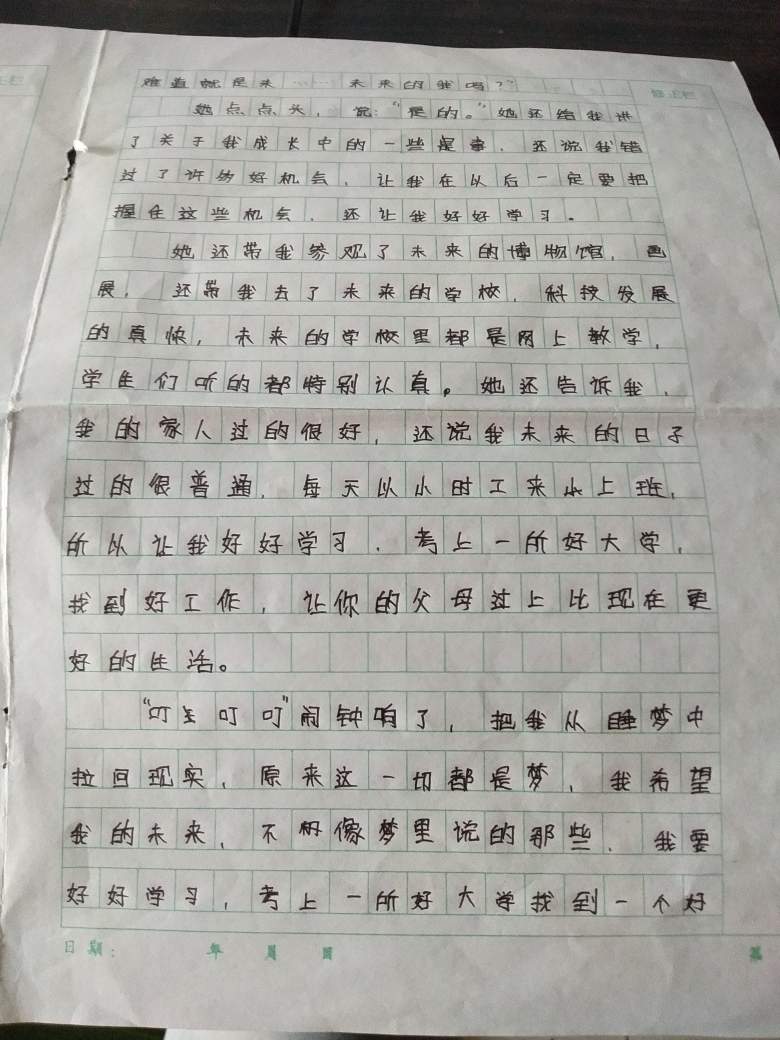 难道就是未……未来的我吗??
她点点头，说:“是的。”她还给我讲
了关于我成长中的一些是事，还说我错
过了许多好机会，让我在以后一定要把
握住这些机会，还让我好好学习。
她还带我参观了未来的博物馆，画
展，还带我去了未来的学校，科技发展
的真快，未来的学校里都是网上教学，
学生们听的都特别认真。她还告诉我，
我的家人过的很好，还说我未来的日子
过的很普通，每天以小时工来上班，
所以让我好好学习，考上一所好大学，
找到好工作，让你的父母过上比现在更
好的生活。
“叮 叮叮”闹钟响了，把我从睡梦中
拉回现实，原来这一切都是梦，我希望
我的未来，不 像梦里说的那些，我要
好好学习，考上一所好大学找到一个好
日期： 年 月 日
第